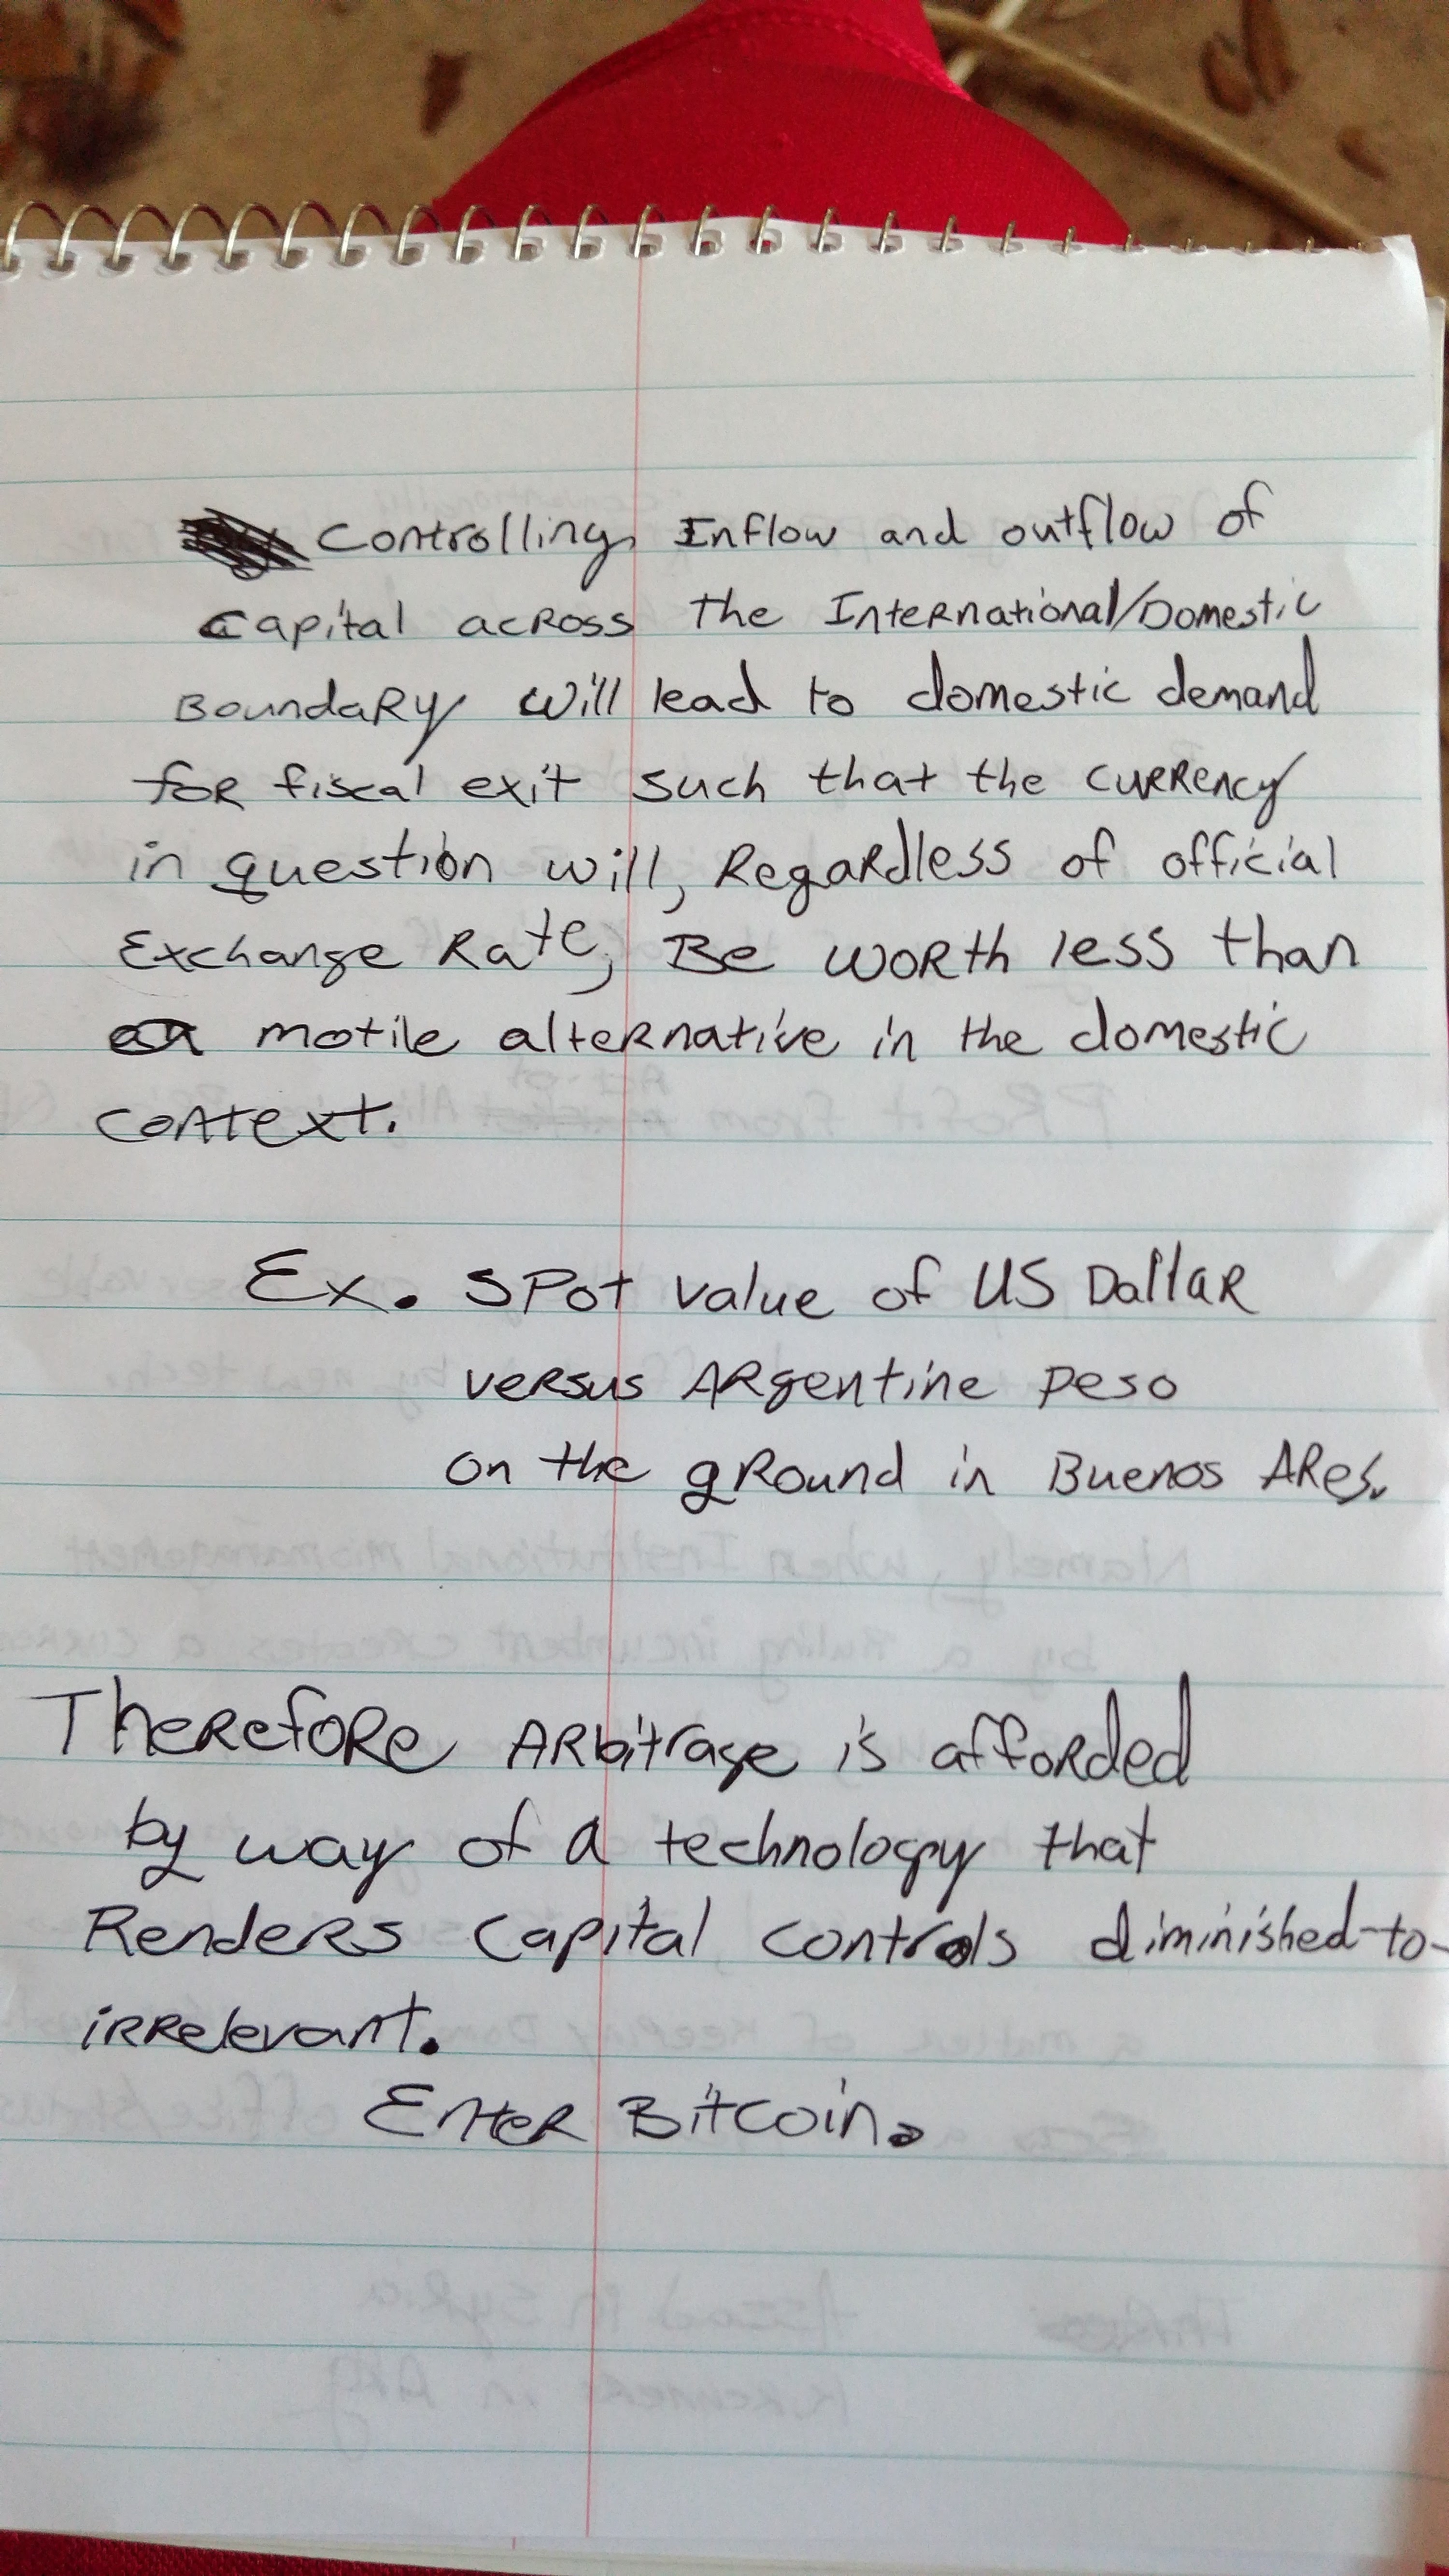 Controlling Inflow and outflow of
Capital across the International/Domestic
Boundary will lead to domestic demand
for fiscal exit such that the currency
in question will, Regardless of official
Exchange Rate, Be worth less than
a motile alternative in the domestic
context.
Ex. Spot value of US Dollar
versus Argentine peso
on the ground in Buenos Ares.
Therefore Arbitrage is afforded
by way of a technology that
Renders Capital controls diminished-to-
irrelevant.
Enter Bitcoin.